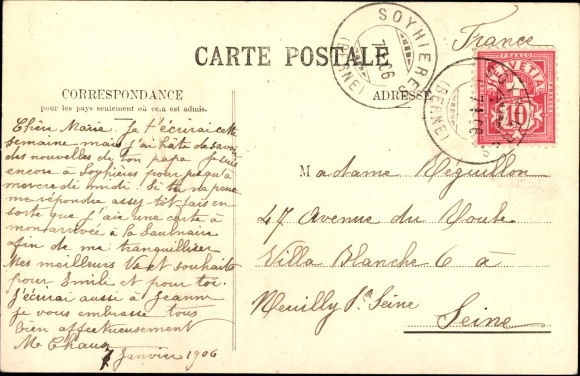 France
SOYHIERES
(BERNE)
7.I.06
CARTE POSTALE
CORRESPONDANCE
pour les pays seulement où cela est admis.
ADRESSE
HELVETIA
FRANCO
10
SOYHIERES
(BERNE)
7.I.06
Chère Marie Je t'écrirai cette
semaine mais j'ai hâte de savoir
des nouvelles de ton papa Je suis
encore à Soyhières pour jusqu'à
mercredi midi. Si tu peux
me répondre assez tôt fais en
sorte que j'aie une carte à
mon arrivée à la Saulnaire
afin de me tranquilliser
Mes meilleurs souhaits
pour Emile et pour toi.
J'écrirai aussi à Jeanne
je vous embrasse tous
bien affectueusement
7 Janvier 1906
Madame Réguillon
47 Avenue du Roule
Villa Blanche 6 à
Neuilly S/ Seine
Seine